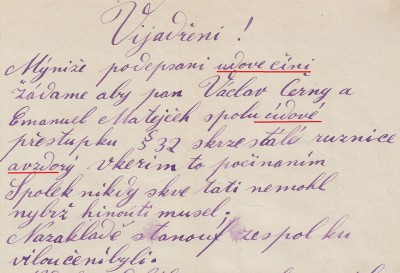 Vijadření!
Mýníže podepsaní udove čini
žádame aby pan Václav Černy a
Emanuel Matejček spolu údové
přestupku § 32 skrze stálé ruznice
a vzdorý v kerim to počinaním
Spolek nikdy skve tati nemohl
nybrž hinouti musel.
Nazakladě stanouf ze spolku
viloučeni byli.